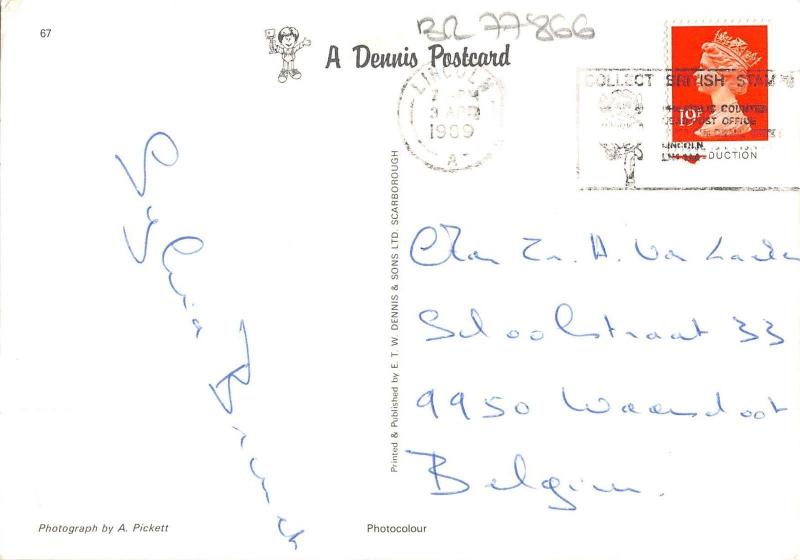 67
BR 77866
A Dennis Postcard
LINCOLN
3 APR
1989
A
COLLECT BRITISH STAM
COUNTER
POST OFFICE
LINCOLN
DUCTION
19P
Printed & Published by E. T. W. DENNIS & SONS LTD. SCARBOROUGH
Sylvia
A. Van
Schoolstraat 33
9950 Waarschoot
Belgium.
Photograph by A. Pickett
Photocolour